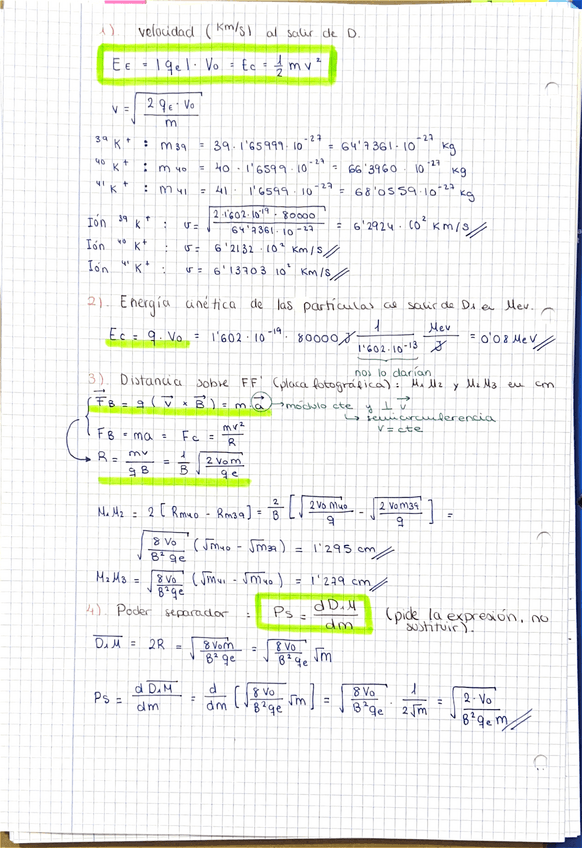 1). velocidad (Km/s) al salir de D.
E_E = |q_e| · V_0 = E_c = 1/2 m v²
v = √(2 q_E · V_0 / m)
³⁹K⁺ : m 39 = 39 · 1'65999 · 10⁻²⁷ = 64'7361 · 10⁻²⁷ kg
⁴⁰K⁺ : m 40 = 40 · 1'6599 · 10⁻²⁷ = 66'3960 · 10⁻²⁷ kg
⁴¹K⁺ : m 41 = 41 · 1'6599 · 10⁻²⁷ = 68'0559 · 10⁻²⁷ kg
Ión ³⁹K⁺ : v = √(2·1'602·10⁻¹⁹ · 80000 / 64'7361 · 10⁻²⁷) = 6'2924 · 10² Km/s
Ión ⁴⁰K⁺ : v = 6'2132 · 10² Km/s
Ión ⁴¹K⁺ : v = 6'13703 10² Km/s
2). Energía cinética de las partículas al salir de D1 en Mev.
Ec = q · V_0 = 1'602 · 10⁻¹⁹ · 80000 J 1/1'602 · 10⁻¹³ Mev/J = 0'08 MeV
nos lo darían
3). Distancia sobre FF' (placa fotográfica) : M1M2 y M2M3 en cm
F_B = q (v × B) = m a → módulo cte y ⊥ v
→ semicircunferencia
v = cte
F_B = ma = F_c = mv²/R
R = mv/qB = 1/B √(2V_0m/qe)
M1M2 = 2 [R_m40 - R_m39] = 2/B [√(2V_0 m40/q) - √(2V_0 m39/q)] =
√(8V_0/B²qe) (√m40 - √m39) = 1'295 cm
M2M3 = √(8V_0/B²qe) (√m41 - √m40) = 1'279 cm
4). Poder separador : Ps = dD1M/dm (pide la expresión, no
sustituir).
D1M = 2R = √(8V_0m/B²qe) = √(8V_0/B²qe) √m
Ps = dD1M/dm = d/dm [√(8V_0/B²qe) √m] = √(8V_0/B²qe) · 1/2√m = √(2·V_0/B²qe m)